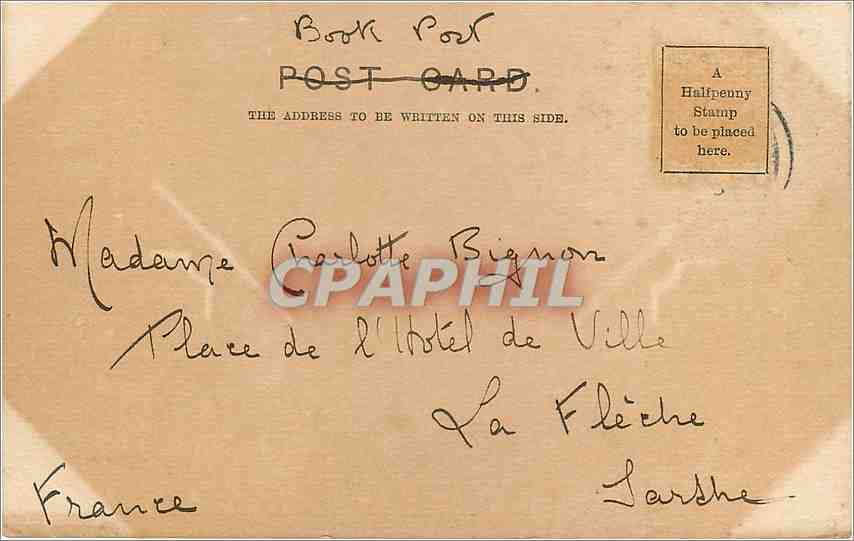 Book Post
POST CARD.
THE ADDRESS TO BE WRITTEN ON THIS SIDE.
A
Halfpenny
Stamp
to be placed
here.
Madame Charlotte Bignon
CPAPHIL
Place de l'Hotel de Ville
La Flèche
Sarthe
France